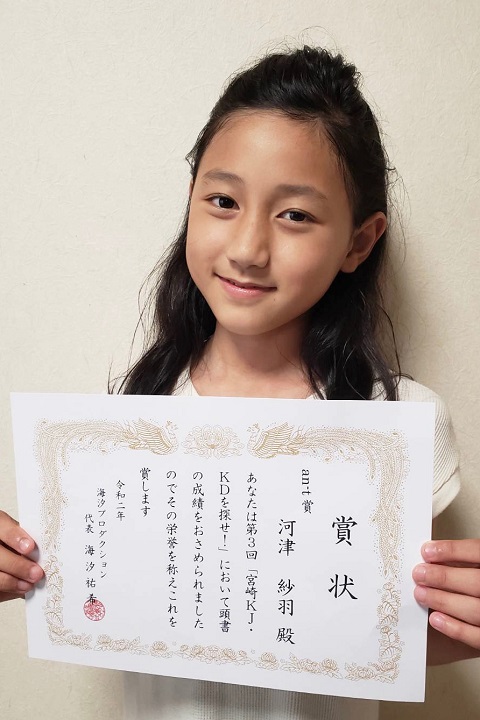 賞状
an-t賞
河津 紗羽 殿
あなたは第3回「宮崎KJ・
KDを探せ!」において頭書
の成績をおさめられました
のでその栄誉を称えこれを
賞します
令和二年
海汐プロダクション
代表 海汐祐希